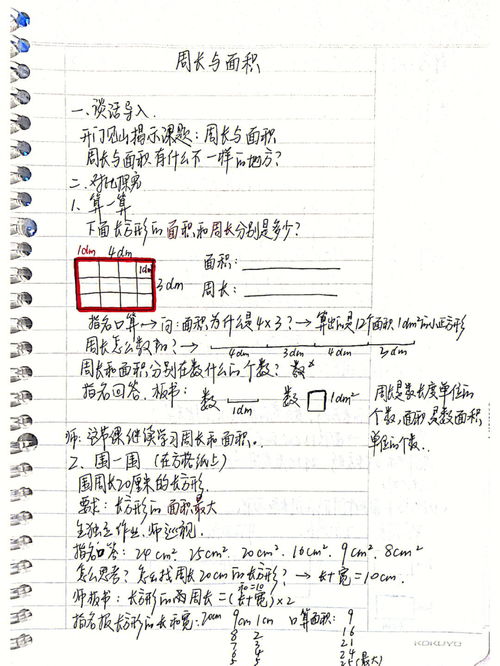 周长与面积
一、谈话导入.
开门见山揭示课题：周长与面积
周长与面积有什么不一样的地方？
二、对比探究
1、算一算
下面长方形的面积和周长分别是多少？
1dm 4dm
1dm
3dm
面积：
周长：
指名口算→问：面积为什么是4×3？→算出的是12个面积1dm²的小正方形
周长怎么数的？→ 4dm 3dm 4dm 3dm
周长和面积分别在数什么的个数？
指名回答.板书： 数 1dm 数 1dm²
周长是数长度单位的
个数，面积是数面积
单位的个数.
师：这节课继续学习周长和面积。
2、围一围 （在方格纸上）
围周长20厘米的长方形.
要求：长方形的面积最大
生独立作业.师巡视.
指名口答：24cm². 25cm². 20cm². 16cm². 9cm². 8cm²
怎么思考？怎么找周长20cm的长方形？→长+宽=10cm.
和=10
师板书：长方形的周长=(长+宽)×2
指名报长方形的长和宽：20cm 9cm 1cm 口算面积： 9
8 2 16
7 3 21
6 4 24
5 5 25(最大)
KOKUYO